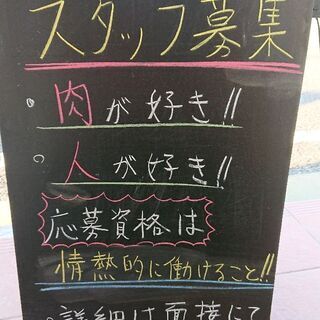 スタッフ募集
・肉が好き!!
・人が好き!!
応募資格は
情熱的に働けること!!
・詳細は面接にて